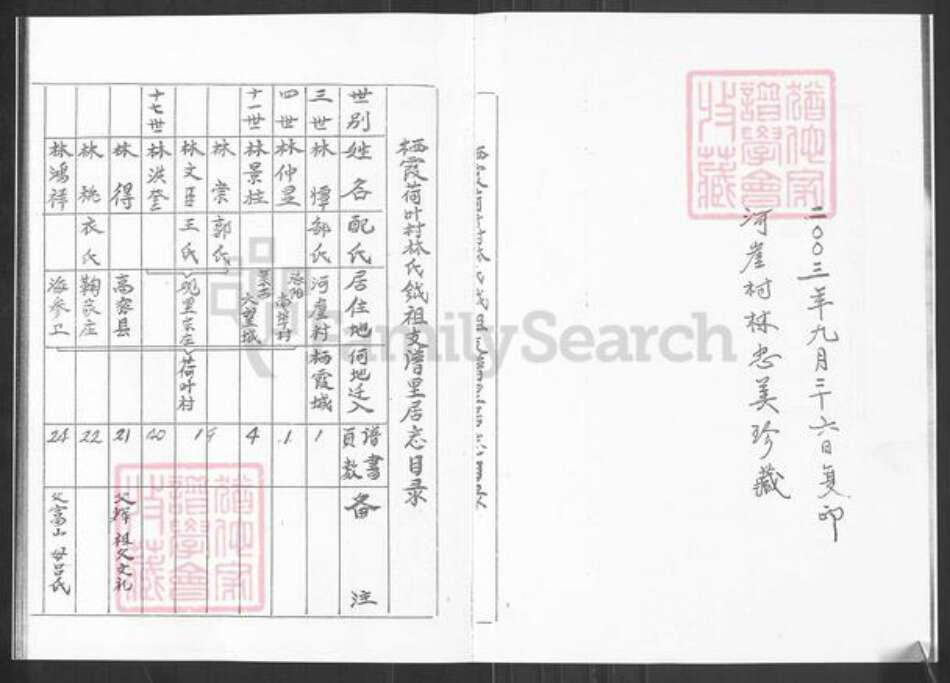 二〇〇三年九月二十六日复印
河崖村林忠美珍藏
栖霞荷叶村林氏始祖支谱里居志目录
世别 姓名 配氏 居住地何地迁入 谱书页数 备注
三世 林 郭氏 河崖村栖霞城 1
四世 林仲 洛阳 南华村 1
十一世 林景柱 莱西 大望城 4
林棠 郭氏
林文 王氏 观里宗庄 荷叶村 19
十七世 林洪 20
林得 高密县 21 父辉祖父文礼
林桃 衣氏 鞠家庄 22
林鸿祥 海参卫 24 父富山母吕氏
FamilySearch